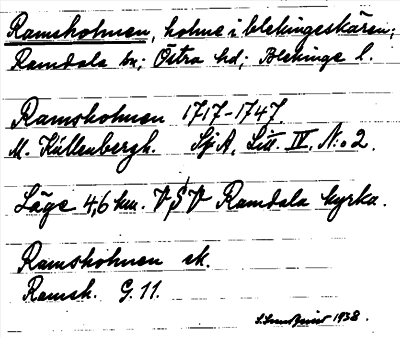 Ramsholmen, holme i blekingeskären;
Ramdala sn; Östra hd; Blekinge l.
Ramsholmen 1717-1747.
M. Küllenbergh. Sj A, Litt. IV, N:o 2.
Läge 4,6 km. VSV Ramdala kyrka.
Ramsholmen ek.
Ramsh. G. 11.
1938.